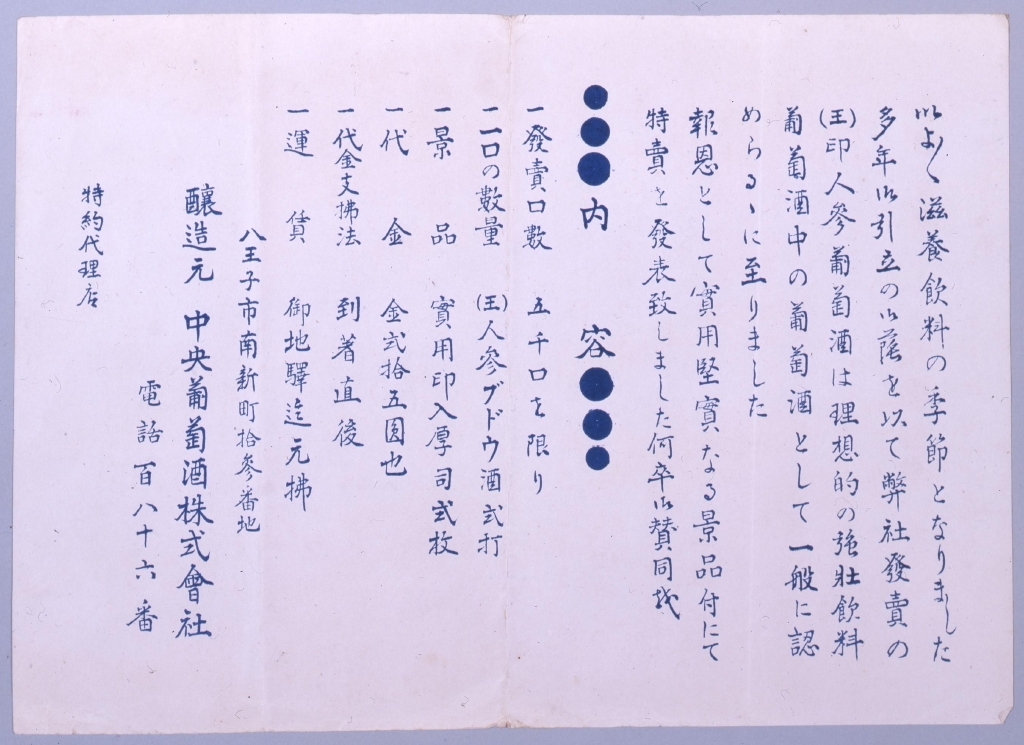 いよ〱滋養飲料の季節となりました
多年御引立の御蔭を以て弊社發賣の
(王)印人參葡萄酒は理想的の強壯飲料
葡萄酒中の葡萄酒として一般に認
めらるゝに至りました
報恩として實用堅實なる景品付にて
特賣を發表致しました何卒御賛同
●●●内容●●●
一發賣口數 五千口を限り
一一口の數量 (王)人參ブドウ酒弍打
一景品 實用印入厚司弍枚
一代金 金弍拾五圓也
一代金支拂法 到著直後
一運賃 御地驛迄元拂
八王子市南新町拾參番地
釀造元 中央葡萄酒株式會社
電話百八十六番
特約代理店